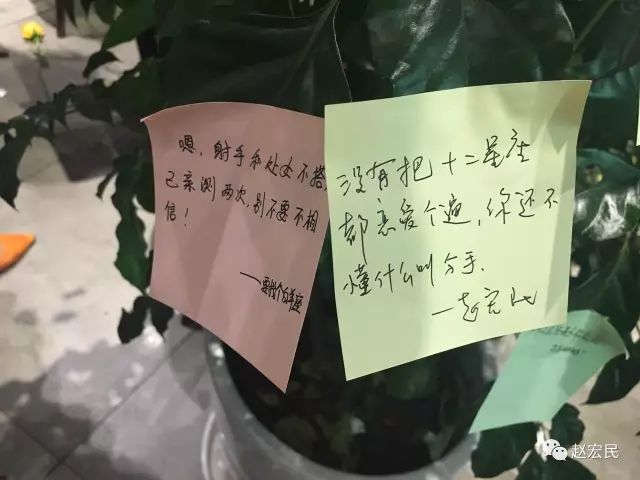 嗯，射手和处女不搭，
已亲测两次，别不要不相
信！
没有把十二星座
都恋爱个遍，你还不
懂什么叫分手。
—赵宏民
赵宏民